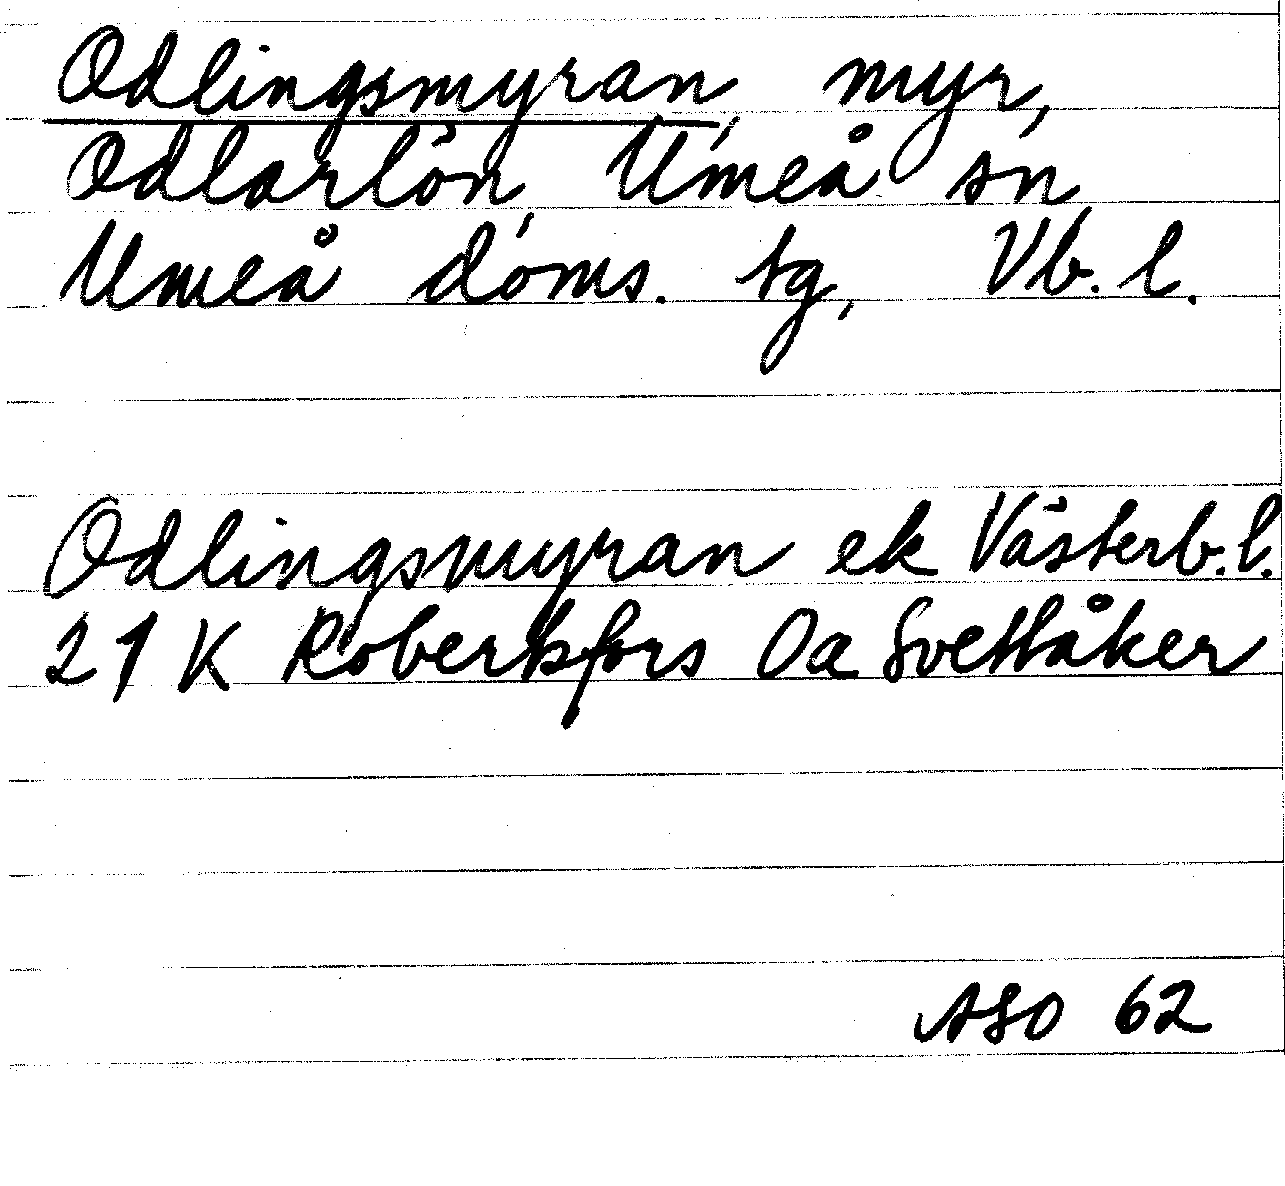 Odlingsmyran, myr,
Odlarlön, Umeå sn,
Umeå doms. tg, Vb. l.
Odlingsmyran ek Västerb. l.
21 K Robertsfors Oa Svettåker
ASO 62